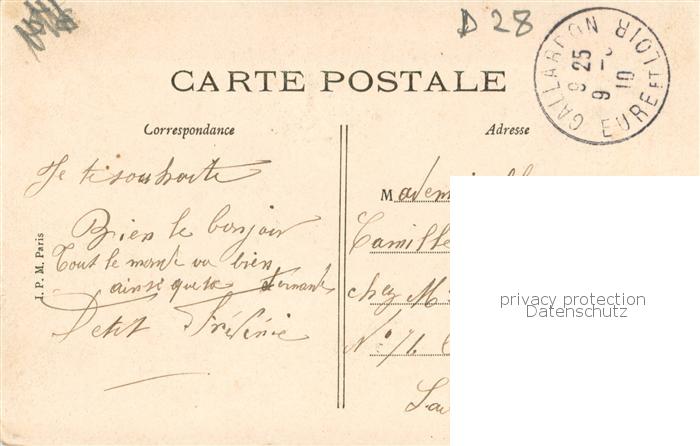 D 28
GALLARDON EURE ET LOIR
9 25
9 - 10
CARTE POSTALE
Correspondance
Adresse
Je te souhaite
Bien le bonjour
Tout le monde va bien
ainsi que ta
Petit Frédéric
I. P. M. Paris
Mademoi
Camille
chez M
No 71
privacy protection
Datenschutz